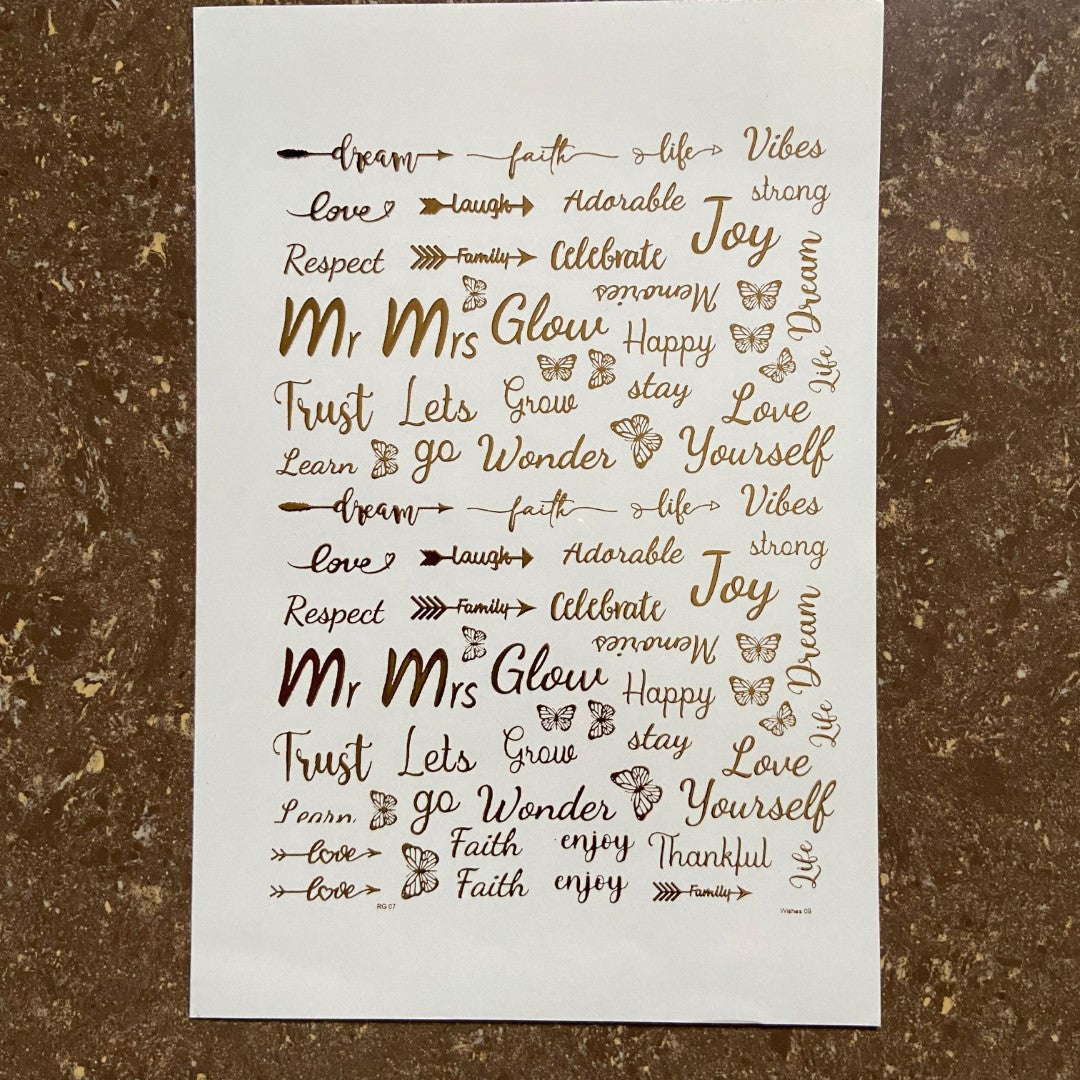 dream faith life Vibes
love laugh Adorable strong
Joy
Respect Family Celebrate
Dream
Memories
Mr Mrs Glow Happy
Life
Trust Lets Grow stay Love
Learn go Wonder Yourself
dream faith life Vibes
love laugh Adorable strong
Joy
Respect Family Celebrate
Dream
Memories
Mr Mrs Glow Happy
Life
Trust Lets Grow stay Love
Learn go Wonder Yourself
love Faith enjoy Thankful Life
love Faith enjoy Family
RG 07 Wishes 09